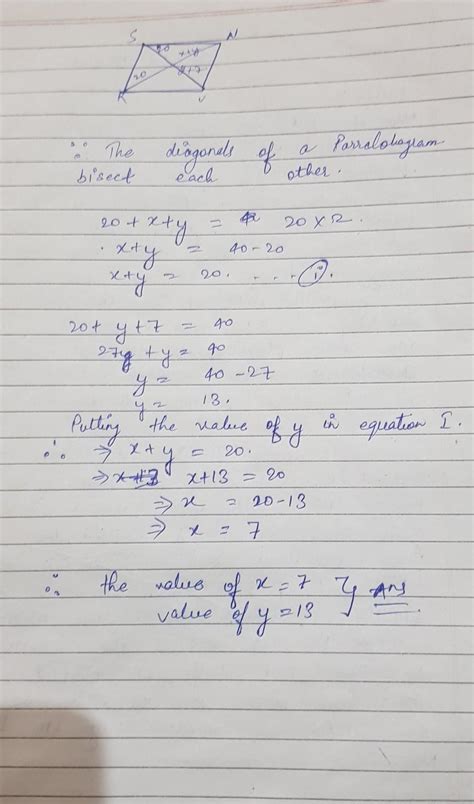 S N
20 x+y
20 y+7
R U
∵ The diagonals of a Parralologram
bisect each other.
20 + x + y = 20 × 2.
x+y = 40-20
x+y = 20. .... (i).
20+ y+7 = 40
27 + y = 40
y = 40 -27
y = 13.
Putting the value of y in equation I.
∴ ⇒ x + y = 20.
⇒ x+13 = 20
⇒ x = 20-13
⇒ x = 7
∴ the value of x = 7 } Ans
value of y = 13